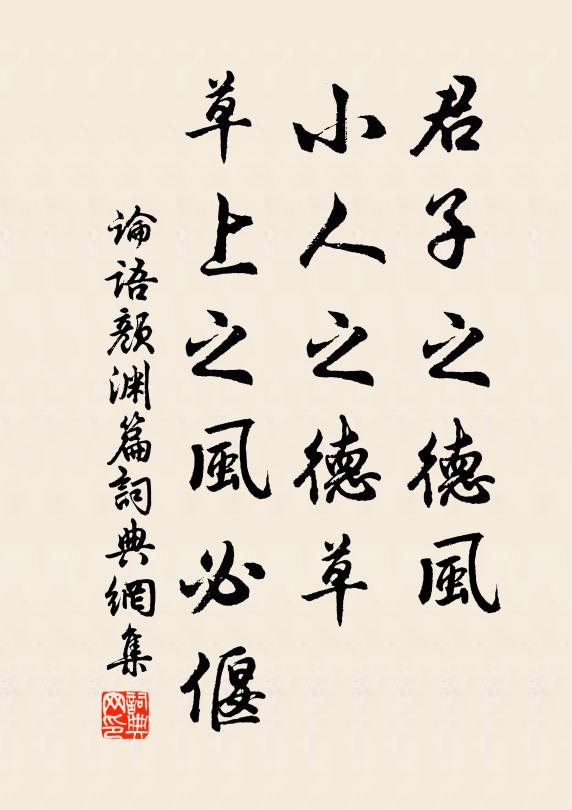 君子之德風
小人之德草
草上之風必偃
论语颜渊篇詞典網集
詞典网印